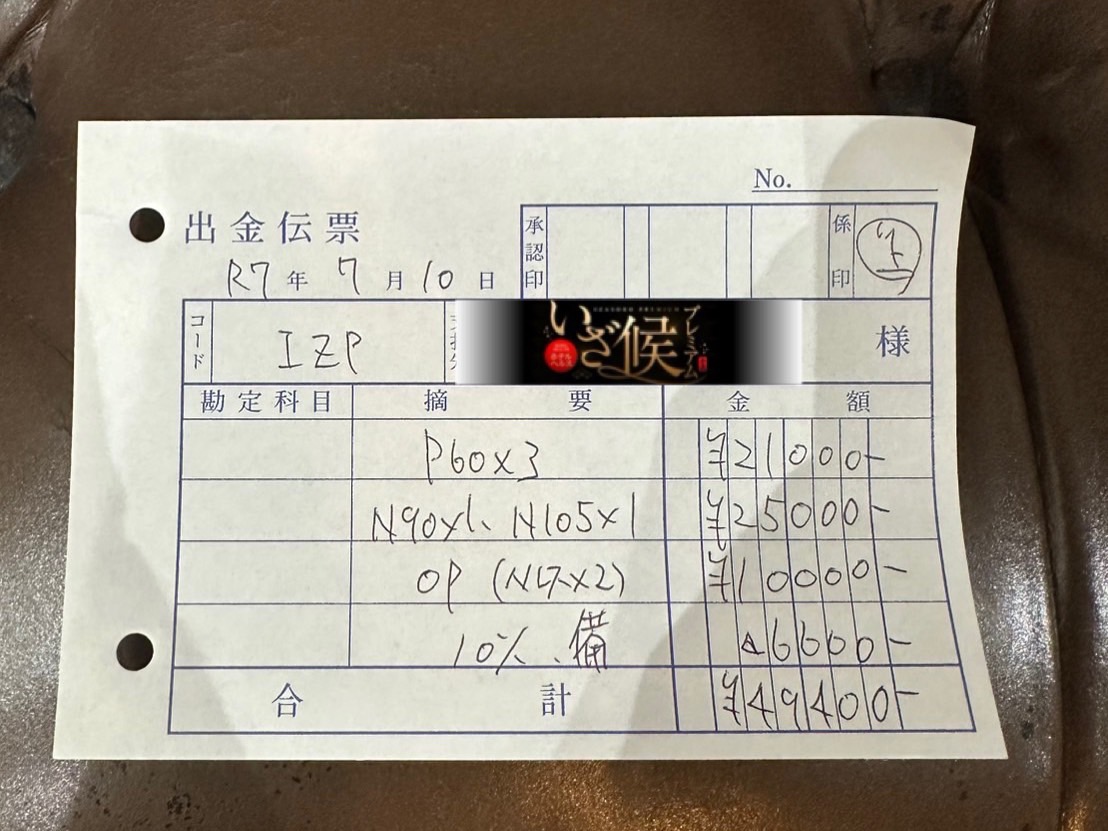 No.
出金伝票
承認印
係印
R7年 7月 10日
コード
IZP
いざ候
プレミアム
様
勘定科目 摘要 金額
P60×3 ¥21000-
N90×1、N105×1 ¥25000-
OP ¥10000-
10%、備 △6600-
合計 ¥49400-